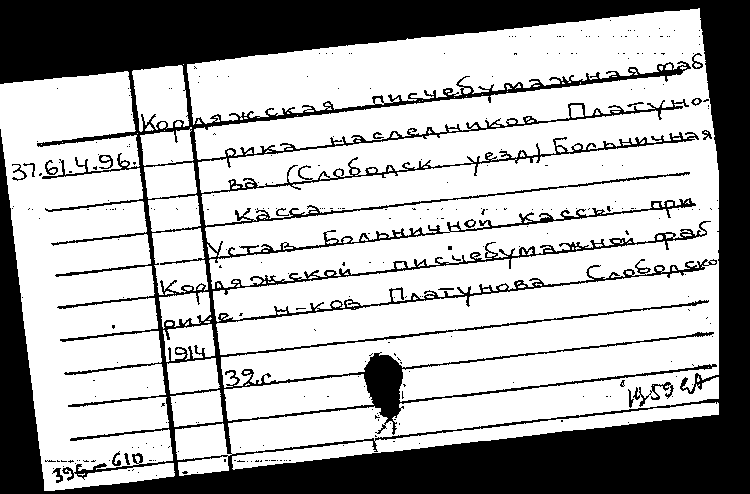 Кордяжская писчебумажная фаб
37.61.4.96. рика наследников Платуно-
ва (Слободск. уезд) Больничная
касса.
Устав Больничной кассы при
Кордяжской писчебумажной фаб
рике н-ков Платунова Слободско
1914
32 с.
396-610